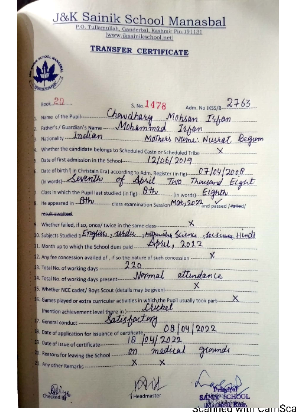 J&K Sainik School Manasbal
P.O. Tullamulla, Ganderbal, Kashmir Pin 191131
(www.jksainikschool.net)
TRANSFER CERTIFICATE
Book 20 S. No. 1478 Adm. No JKSS/B- 2763
1. Name of the Pupil Choudhary Mohsan Irfan
2. Father's / Guardian's Name Mohammad Irfan
3. Nationality Indian Mothers Name: Nusrat Begum
4. Whether the candidate belongs to Scheduled Caste or Scheduled Tribe X
5. Date of first admission in the School 12/06/2019
6. Date of birth (in Christian Era) according to Adm. Register (in fig) 07/04/2008
(in words) Seventh of April Two Thousand Eight
7. Class in which the Pupil last studied (in fig) 8th (in words) Eighth
8. He appeared in 8th class examination Session Mar, 2022 and passed
9. Whether failed, if so, once/ twice in the same class X
10. Subjects Studied English, Urdu, Science, Hindi
11. Month up to which the School dues paid April, 2022
12. Any fee concession availed of , if so the nature of such concession X
13. Total No. of working days 220
14. Total No. of working days present Normal attendance
15. Whether NCC cadet/ Boys Scout (details may be given) X
16. Games played or extra curricular activities in which the Pupil usually took part X
(mention achievement level there in) Cricket
17. General conduct Satisfactory
18. Date of application for issuance of certificate 08/04/2022
19. Date of issue of certificate 18/04/2022
20. Reasons for leaving the School on medical grounds
21. Any other Remarks X X
Checked Headmaster Principal
SAINIK SCHOOL
Scanned with CamSca